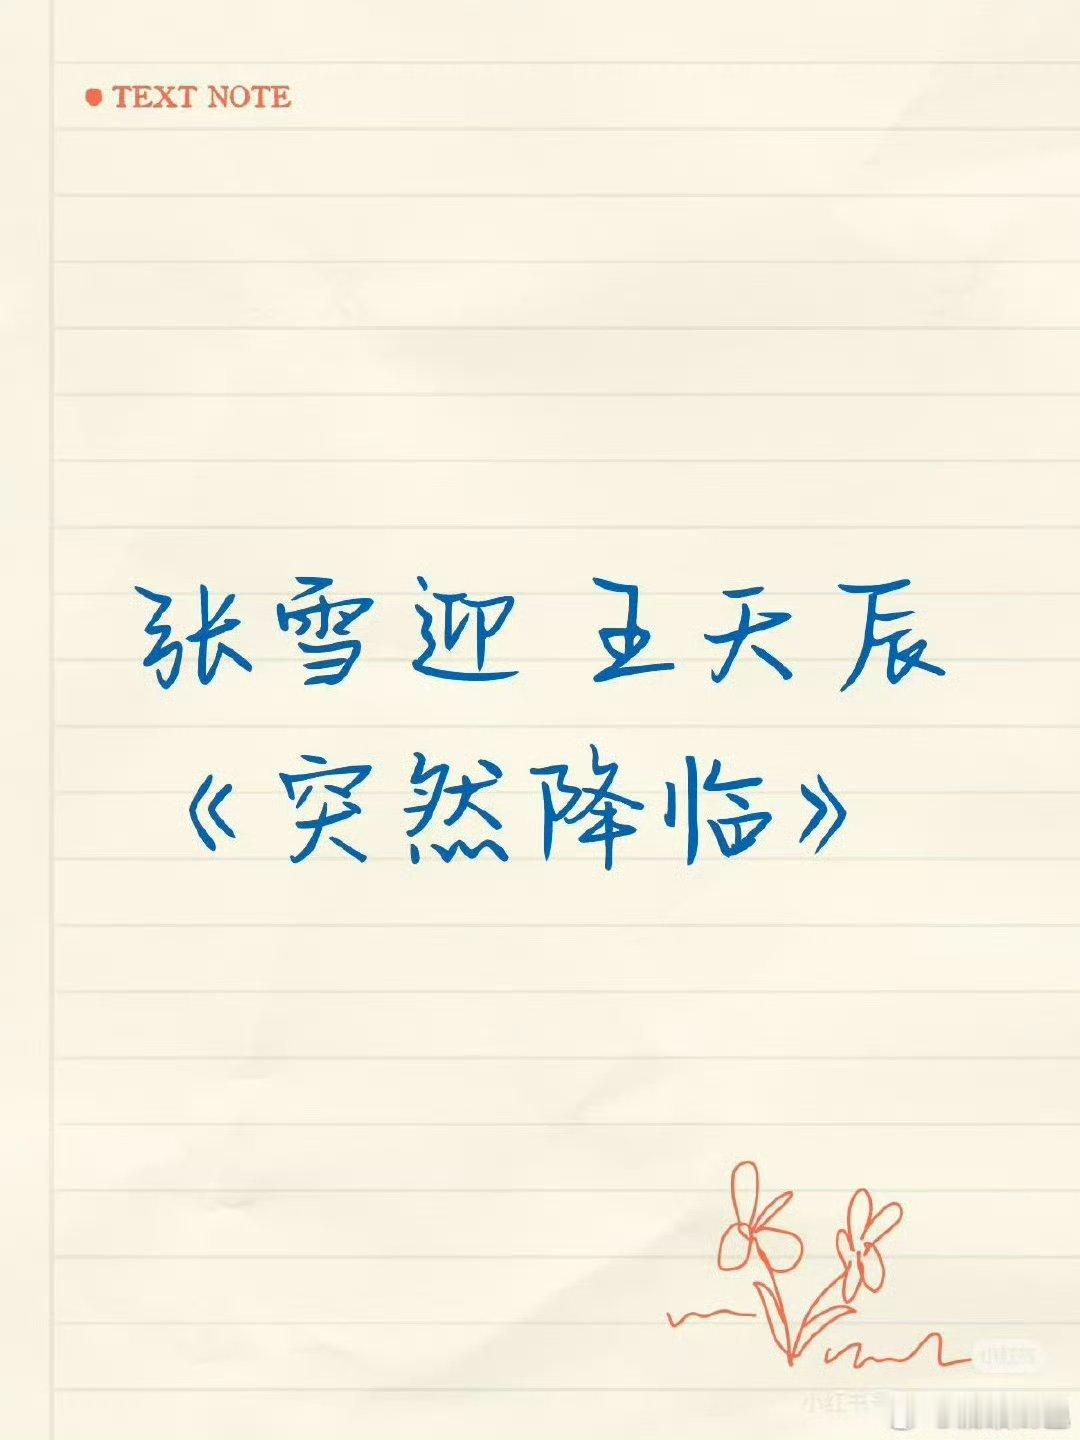 TEXT NOTE
张雪迎 王天辰
《突然降临》
小红书
小红书